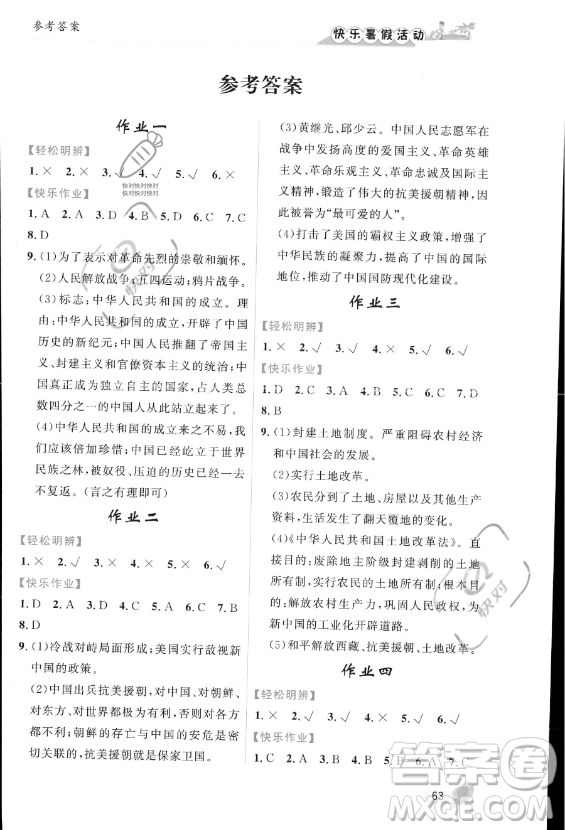 参考答案
快乐暑假活动
参考答案
作业一
【轻松明辨】
1. × 2. × 3. √ 4. √ 5. √ 6. ×
【快乐作业】
1. A 2. A 3. D 4. B 5. D 6. C 7. C
8. D
9. (1)为了表示对革命先烈的崇敬和缅怀。
(2)人民解放战争;五四运动;鸦片战争。
(3)标志:中华人民共和国的成立。理
由:中华人民共和国的成立,开辟了中国
历史的新纪元;中国人民推翻了帝国主
义、封建主义和官僚资本主义的统治;中
国成为独立自主的国家,占人类总数四
分之一的中国人从此站立起来了。
(4)中华人民共和国的成立来之不易,我
们应该倍加珍惜;中国已经屹立于世界
民族之林,被奴役、压迫的历史已经一去
不复返。(言之有理即可)
作业二
【轻松明辨】
1. × 2. √ 3. √ 4. × 5. √ 6. ×
【快乐作业】
1. D 2. A
9. (1)冷战对峙局面形成;美国实行敌视新
中国的政策。
(2)中国出兵抗美援朝,对中国、对朝鲜、
对东方、对世界都极为有利,否则大为不
利;朝鲜的存亡与中国的安危是密切关联
的,抗美援朝就是保家卫国。
(3)黄继光、邱少云。中国人民志愿军在
战争中发扬了高度的爱国主义、革命英雄
主义、
精神,锻造了伟大的抗美援朝精神,因此
被誉为“最可爱的人”。
(4)打击了美国的霸权主义政策,增强了
中华民族的凝聚力,提高了中国的国际
地位,推动了中国国防现代化建设。
作业三
【轻松明辨】
1. × 2. √ 3. √ 4. × 5. √ 6. √
【快乐作业】
1. D 2. A 3. B 4. C 5. A 6. C 7. D
8. B
9. (1)封建土地制度。严重阻碍农村经济
和中国社会的发展。
(2)实行土地改革。
(3)农民分到了土地、房屋以及其他生产
资料,生活发生了翻天覆地的变化。
(4)《中华人民共和国土地改革法》;
制度:废除地主阶级封建剥削的土地所
有制,实行农民的土地所有制。目的:
解放农村生产力,巩固人民政权,为新中国
的工业化开辟道路。
(5)和平解放西藏、抗美援朝、土地改革。
作业四
【轻松明辨】
1. × 2. √
【快乐作业】
1. C 2. C 3. A 4. D 5. B 6. C 7. C
63